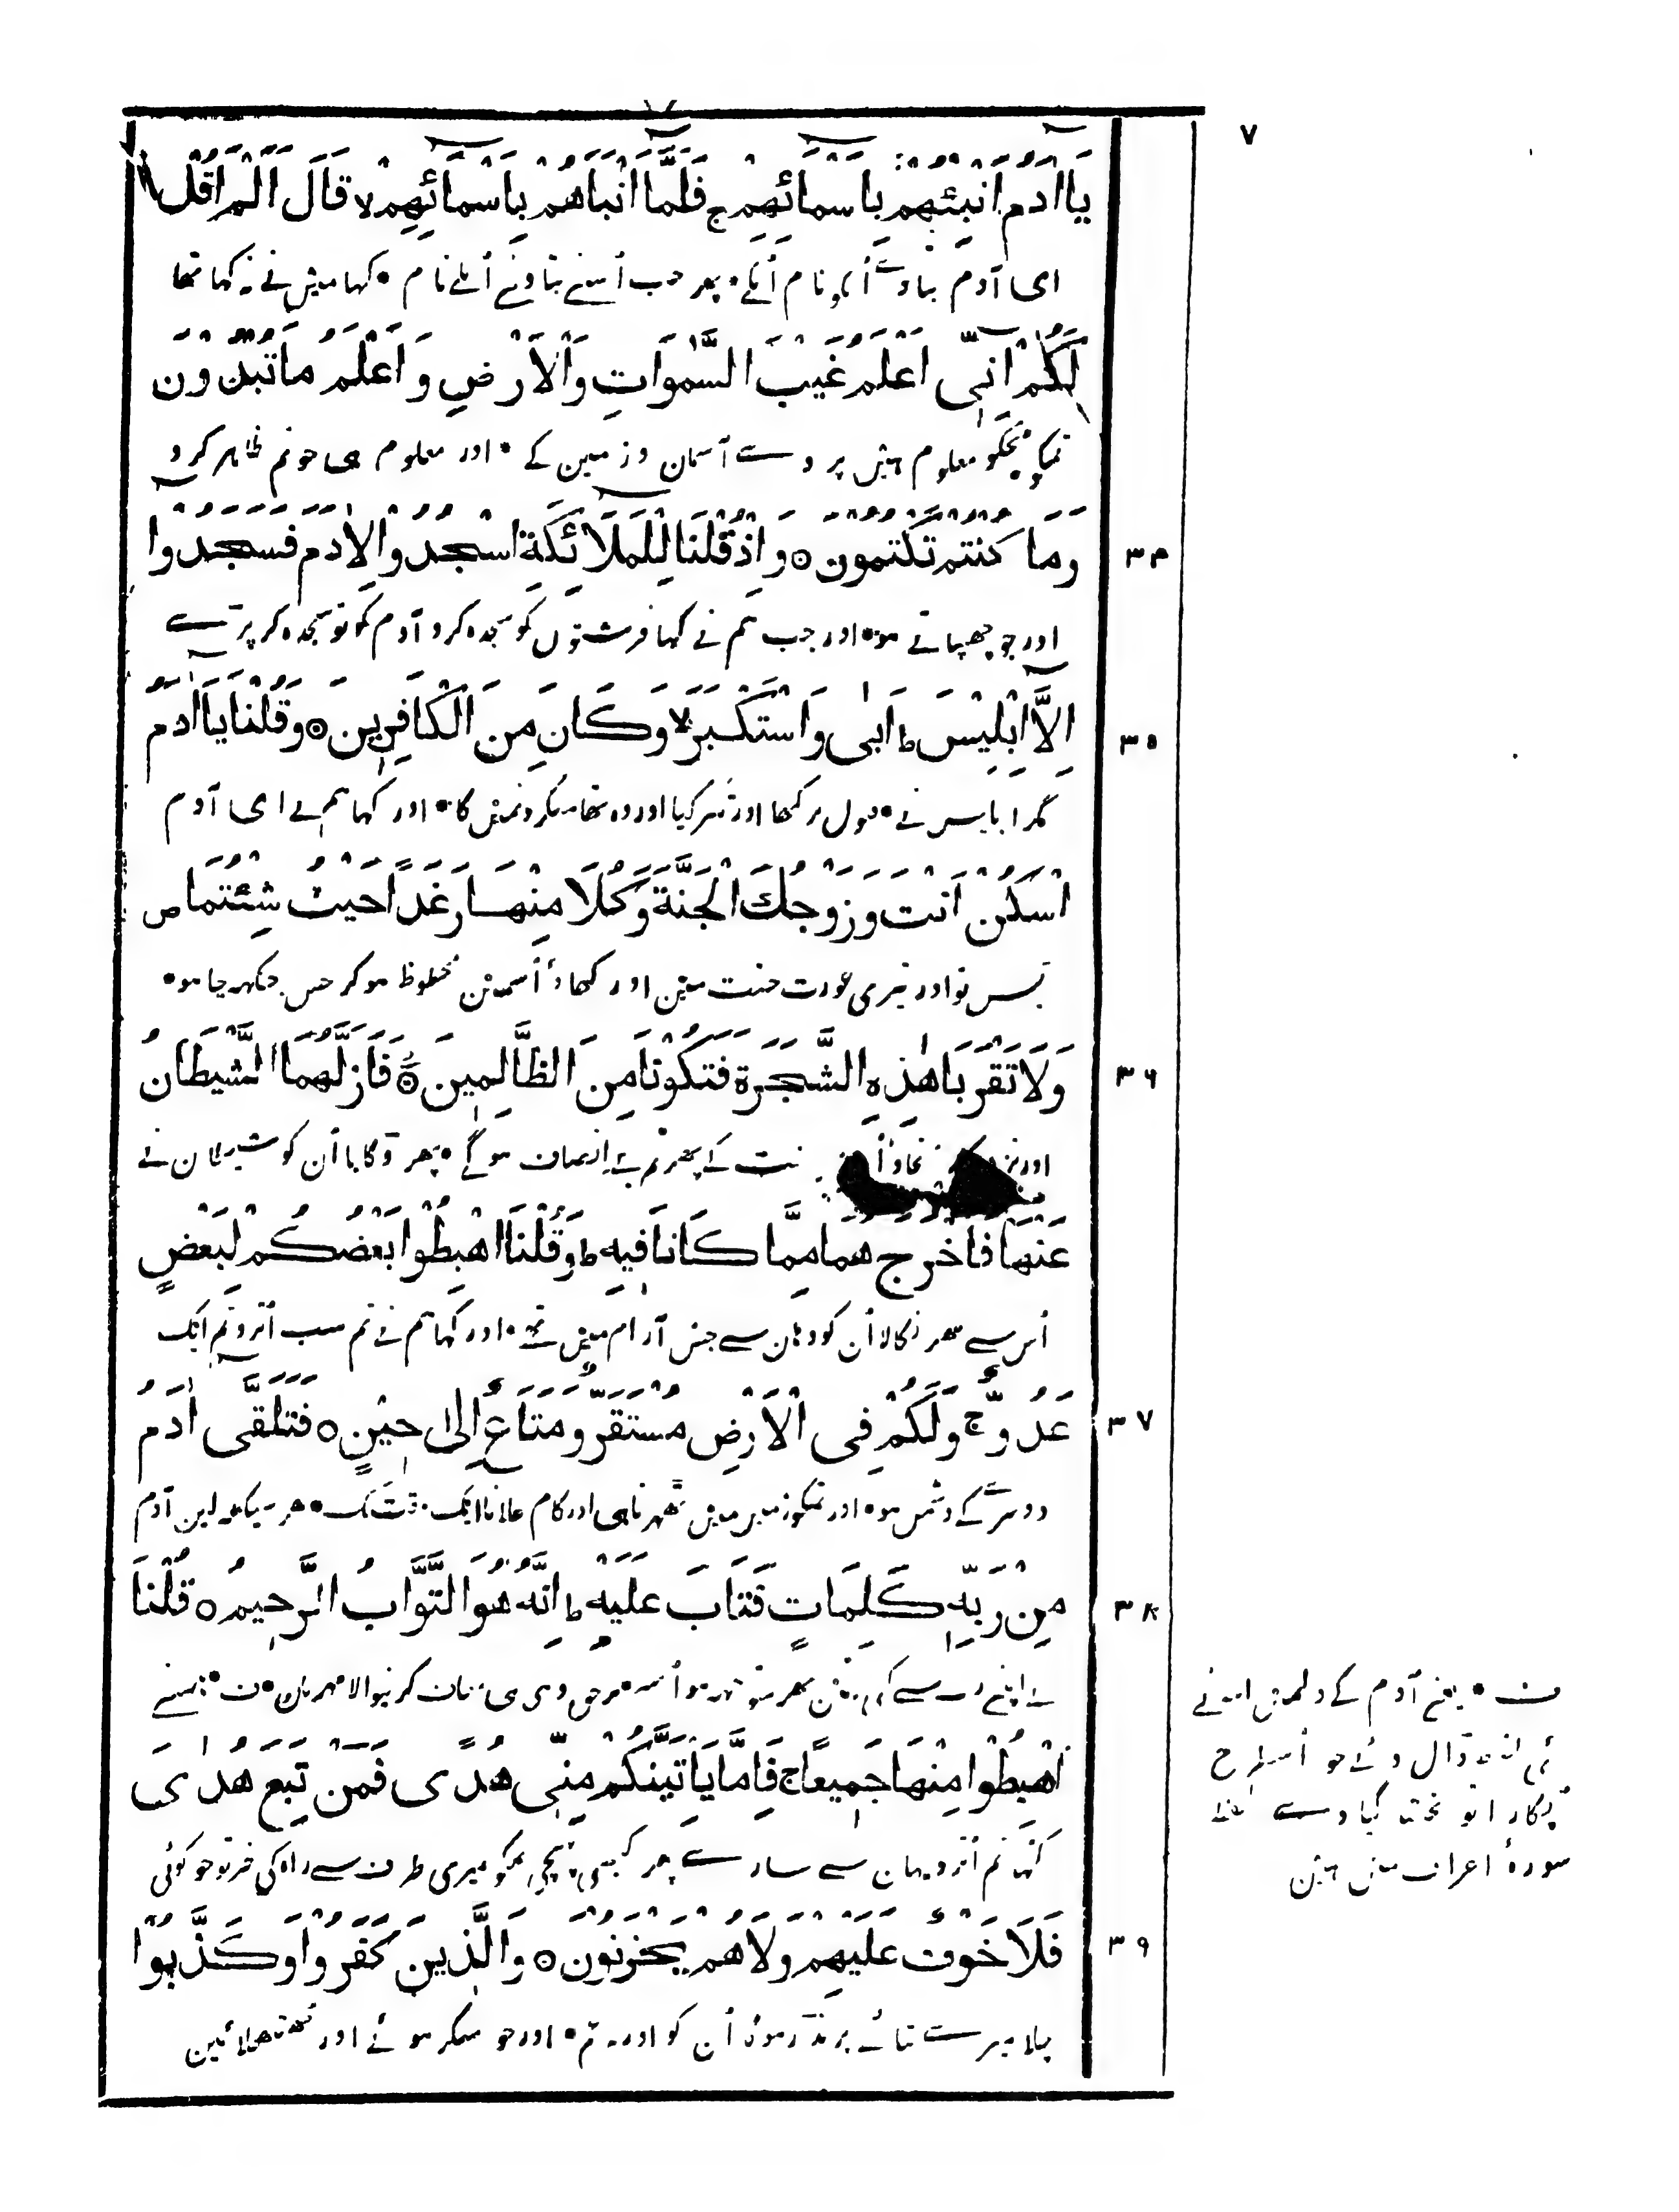 ۷
يَا اٰدَمُ اَنْبِئْهُمْ بِاَسْمَائِهِمْ ج فَلَمَّا اَنْبَاَهُمْ بِاَسْمَائِهِمْ لا قَالَ اَلَمْ اَقُلْ
ای آدم بتا دے اُنکو نام اُنکے ۰ پھر جب اُسنے بتا دئے اُنکے نام ۰ کہا مین نے نہ کہا تھا
لَكُمْ اِنِّي اَعْلَمُ غَيْبَ السَّمٰوَاتِ وَالْاَرْضِ وَ اَعْلَمُ مَا تُبْدُوْنَ
تمکو مجھکو معلوم ہین پردے آسمان و زمین کے ۰ اور معلوم ہی جو تم ظاہر کرو
وَمَا كُنْتُمْ تَكْتُمُوْنَ ۝ وَ اِذْ قُلْنَا لِلْمَلَائِكَةِ اسْجُدُوا لِاٰدَمَ فَسَجَدُوا
۳۴
اور جو چھپاتے ہو ۰ اور جب ہم نے کہا فرشتون کو سجدہ کرو آدم کو تو سجدہ کر پڑے
اِلَّا اِبْلِيْسَ ط اَبٰى وَاسْتَكْبَرَ لا وَكَانَ مِنَ الْكَافِرِيْنَ ۝ وَقُلْنَا يَا اٰدَمُ
۳۵
مگر ابلیس نے ۰ قبول نرکھا اور تکبر کیا اور وہ تھا منکرونمین کا ۰ اور کہا ہم نے ای آدم
اسْكُنْ اَنْتَ وَزَوْجُكَ الْجَنَّةَ وَكُلَا مِنْهَا رَغَدًا حَيْثُ شِئْتُمَا ص
بس تو اور تیری عورت جنت مین اور کھاؤ اُسمین محظوظ ہو کر جس جگہہ چاہو ۰
وَلَا تَقْرَبَا هٰذِهِ الشَّجَرَةَ فَتَكُوْنَا مِنَ الظَّالِمِيْنَ ۝ فَاَزَلَّهُمَا الشَّيْطَانُ
۳۶
اور نزدیک نجاؤ کے پھر تم بے انصاف ہو گے ۰ پھر ڈگایا اُن کو شیطان نے
عَنْهَا فَاَخْرَجَهُمَا مِمَّا كَانَا فِيْهِ ط وَقُلْنَا اهْبِطُوْا بَعْضُكُمْ لِبَعْضٍ
اُس سے پھر نکالا اُن کو وہان سے جس آرام مین تھے ۰ اور کہا ہم نے تم سب اُترو تم ایک
عَدُوٌّ ج وَلَكُمْ فِي الْاَرْضِ مُسْتَقَرٌّ وَمَتَاعٌ اِلٰى حِيْنٍ ۝ فَتَلَقّٰى اٰدَمُ
۳۷
دوسرے کے دشمن ہو ۰ اور تمکو زمین مین ٹھہرنا ہی اور کام چلانا ایک وقت تک ۰ پھر سیکھ لین آدم
مِنْ رَبِّهِ كَلِمَاتٍ فَتَابَ عَلَيْهِ ط اِنَّهُ هُوَ التَّوَّابُ الرَّحِيْمُ ۝ قُلْنَا
۳۸
نے اپنے رب سے کئی باتین پھر متوجہہ ہوا اُسپر ۰ برحق وہی ہی معاف کرنیوالا مہربان ۰ ف ۰ ہمنے
اهْبِطُوْا مِنْهَا جَمِيْعًا ج فَاِمَّا يَاْتِيَنَّكُمْ مِنِّي هُدًى فَمَنْ تَبِعَ هُدَاىَ
کہا تم اُترو یہان سے سارے پھر کبھی پہنچے تمکو میری طرف سے راہ کی خبر تو جو کوئی
فَلَا خَوْفٌ عَلَيْهِمْ وَلَا هُمْ يَحْزَنُوْنَ ۝ وَالَّذِيْنَ كَفَرُوْا وَكَذَّبُوْا
۳۹
چلا میرے بتائے پر نہ ڈر ہوگا اُن کو اور نہ غم ۰ اور جو منکر ہوئے اور جھٹھلائین
ف ۰ یعنے آدم کے دلمین اللہ نے
کئی لفظ ڈال دئے جو اُسطرح
پکارا تو بخشا گیا وے لفظ
سورۂ اعراف مین ہین